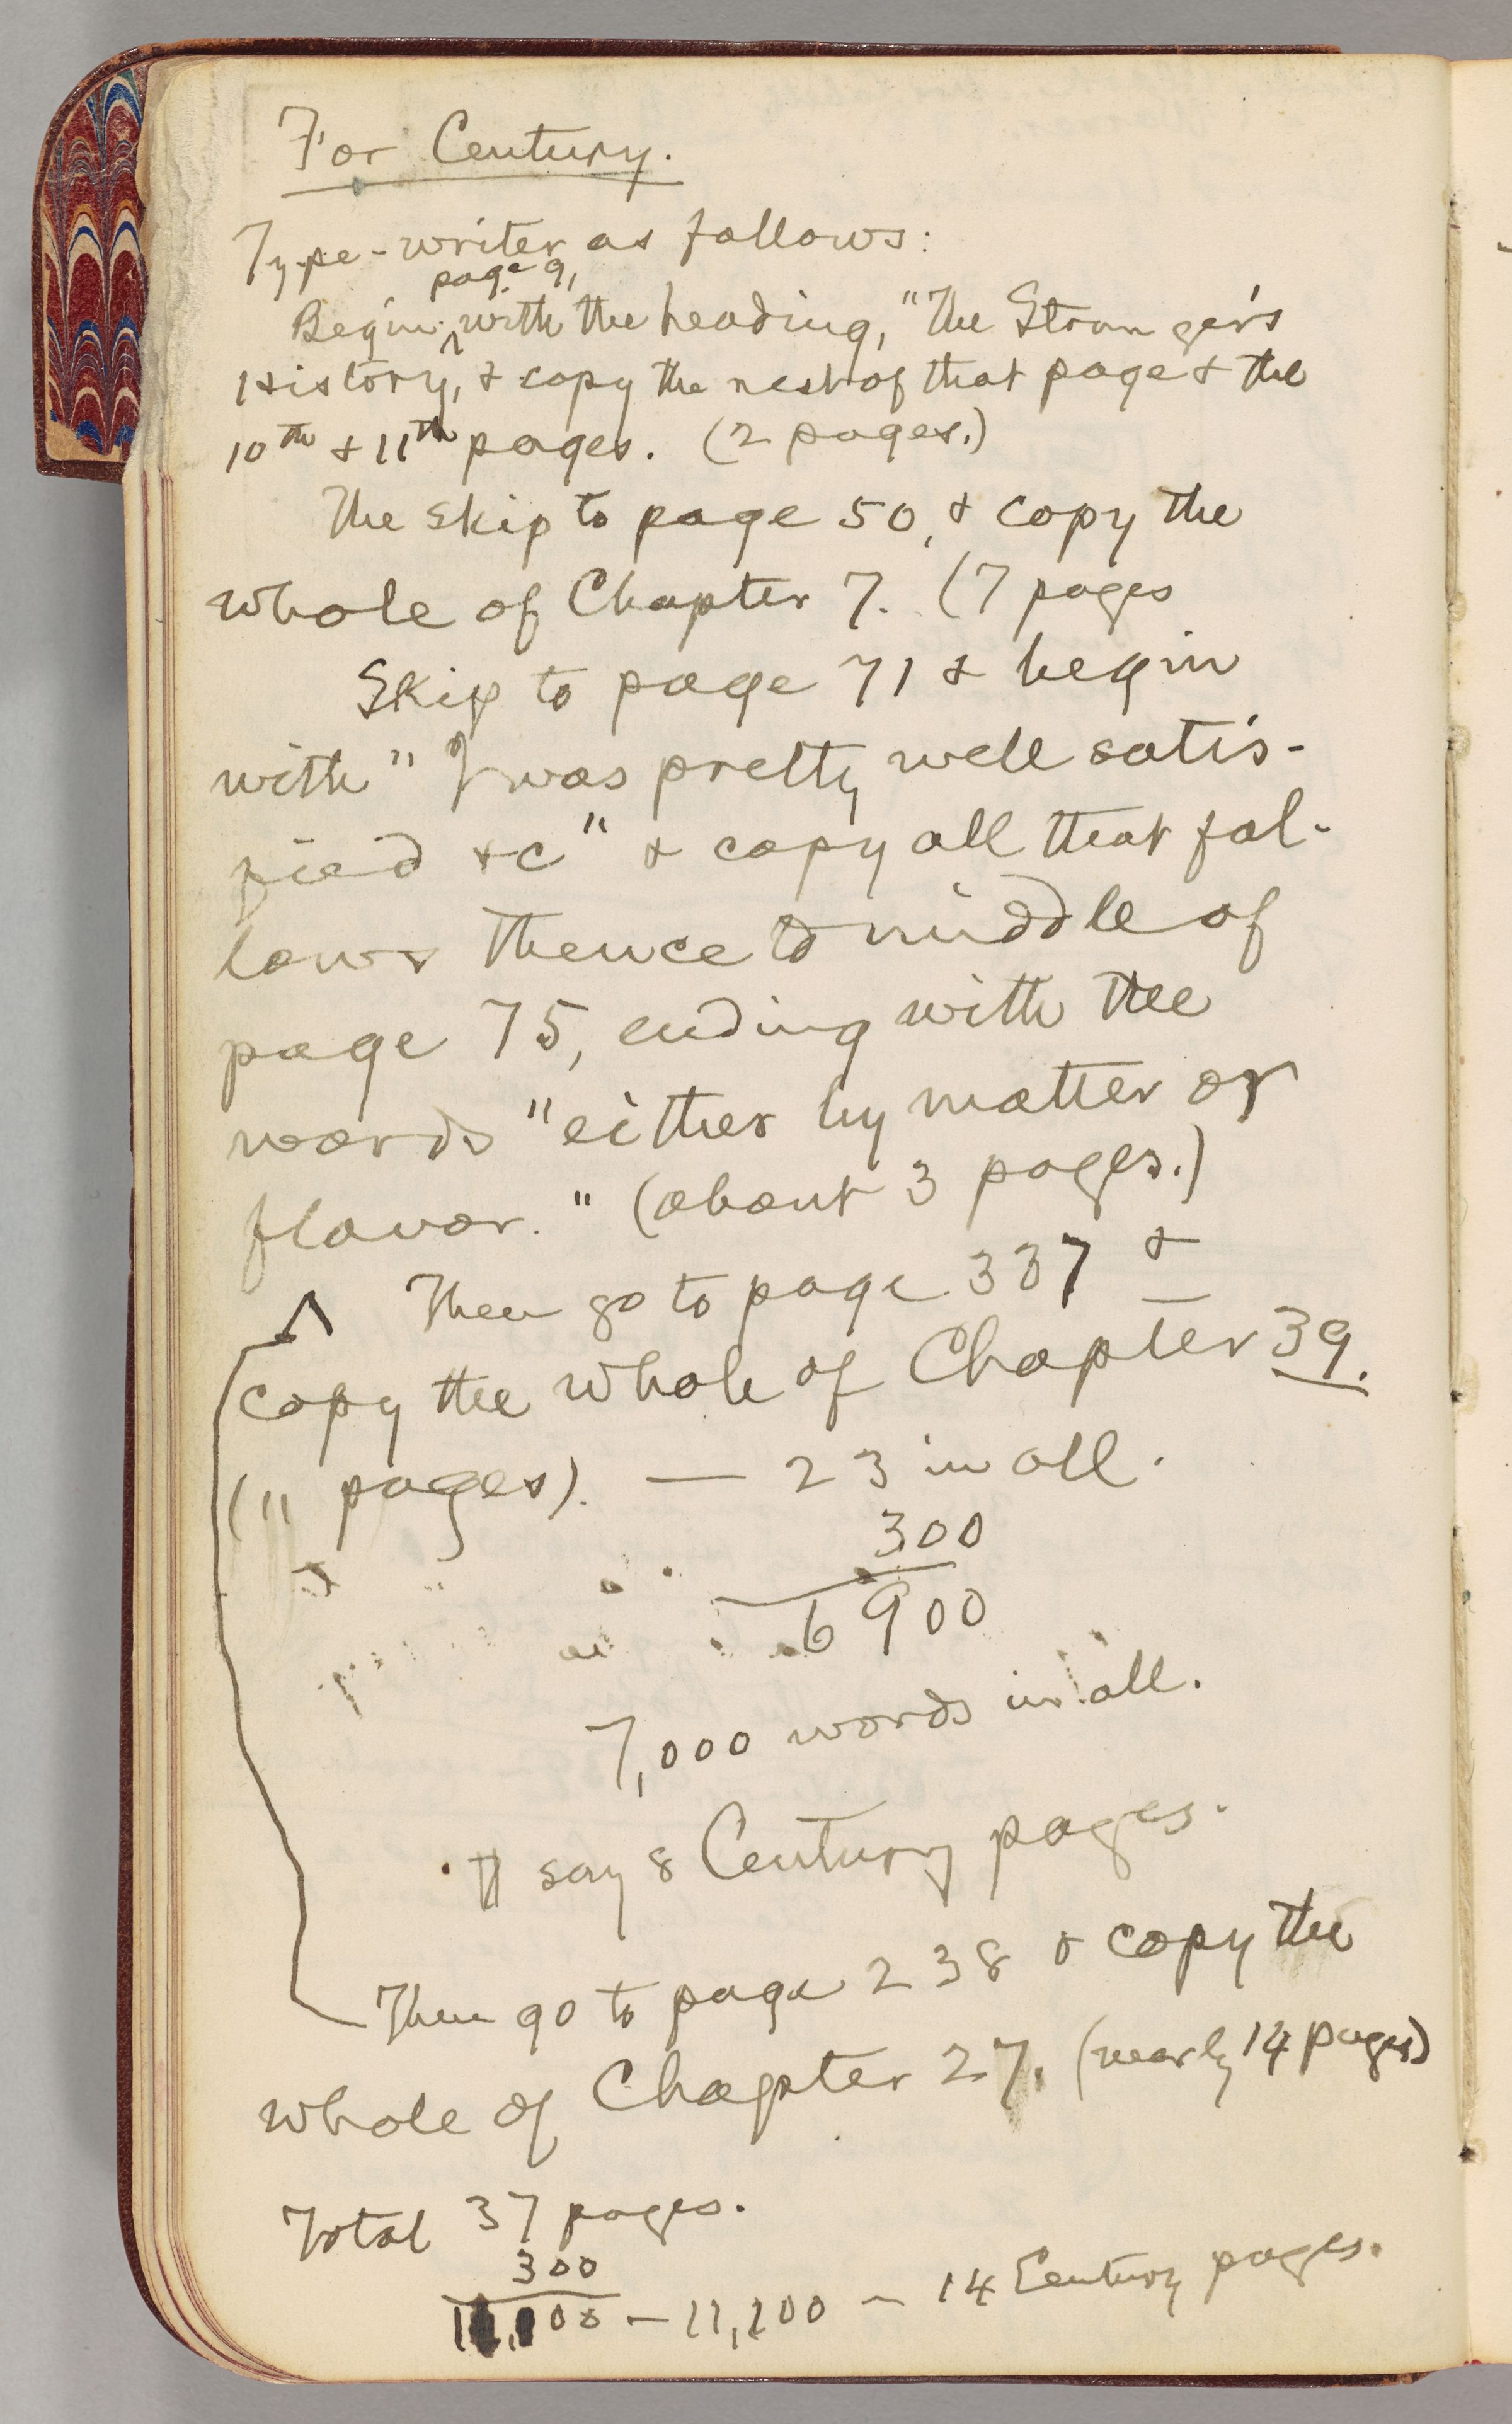 For Century.
Type-writer as follows:
page 9,
Begin ^ with the heading, "The Stranger's
History, & copy the rest of that page & the
10th & 11th pages. (2 pages.)
The skip to page 50, & copy the
whole of Chapter 7. (7 pages
Skip to page 71 & begin
with "I was pretty well satis-
fied &c" & copy all that fol-
lows thence to middle of
page 75, ending with the
words "either by matter or
flavor." (about 3 pages.)
^ Then go to page 337 &
copy the whole of Chapter 39.
(11 pages). — 23 in all.
300
6900
7,000 words in all.
say 8 Century pages.
Then go to page 238 & copy the
whole of Chapter 27. (nearly 14 pages)
Total 37 pages.
300
— 11,100 — 14 Century pages.